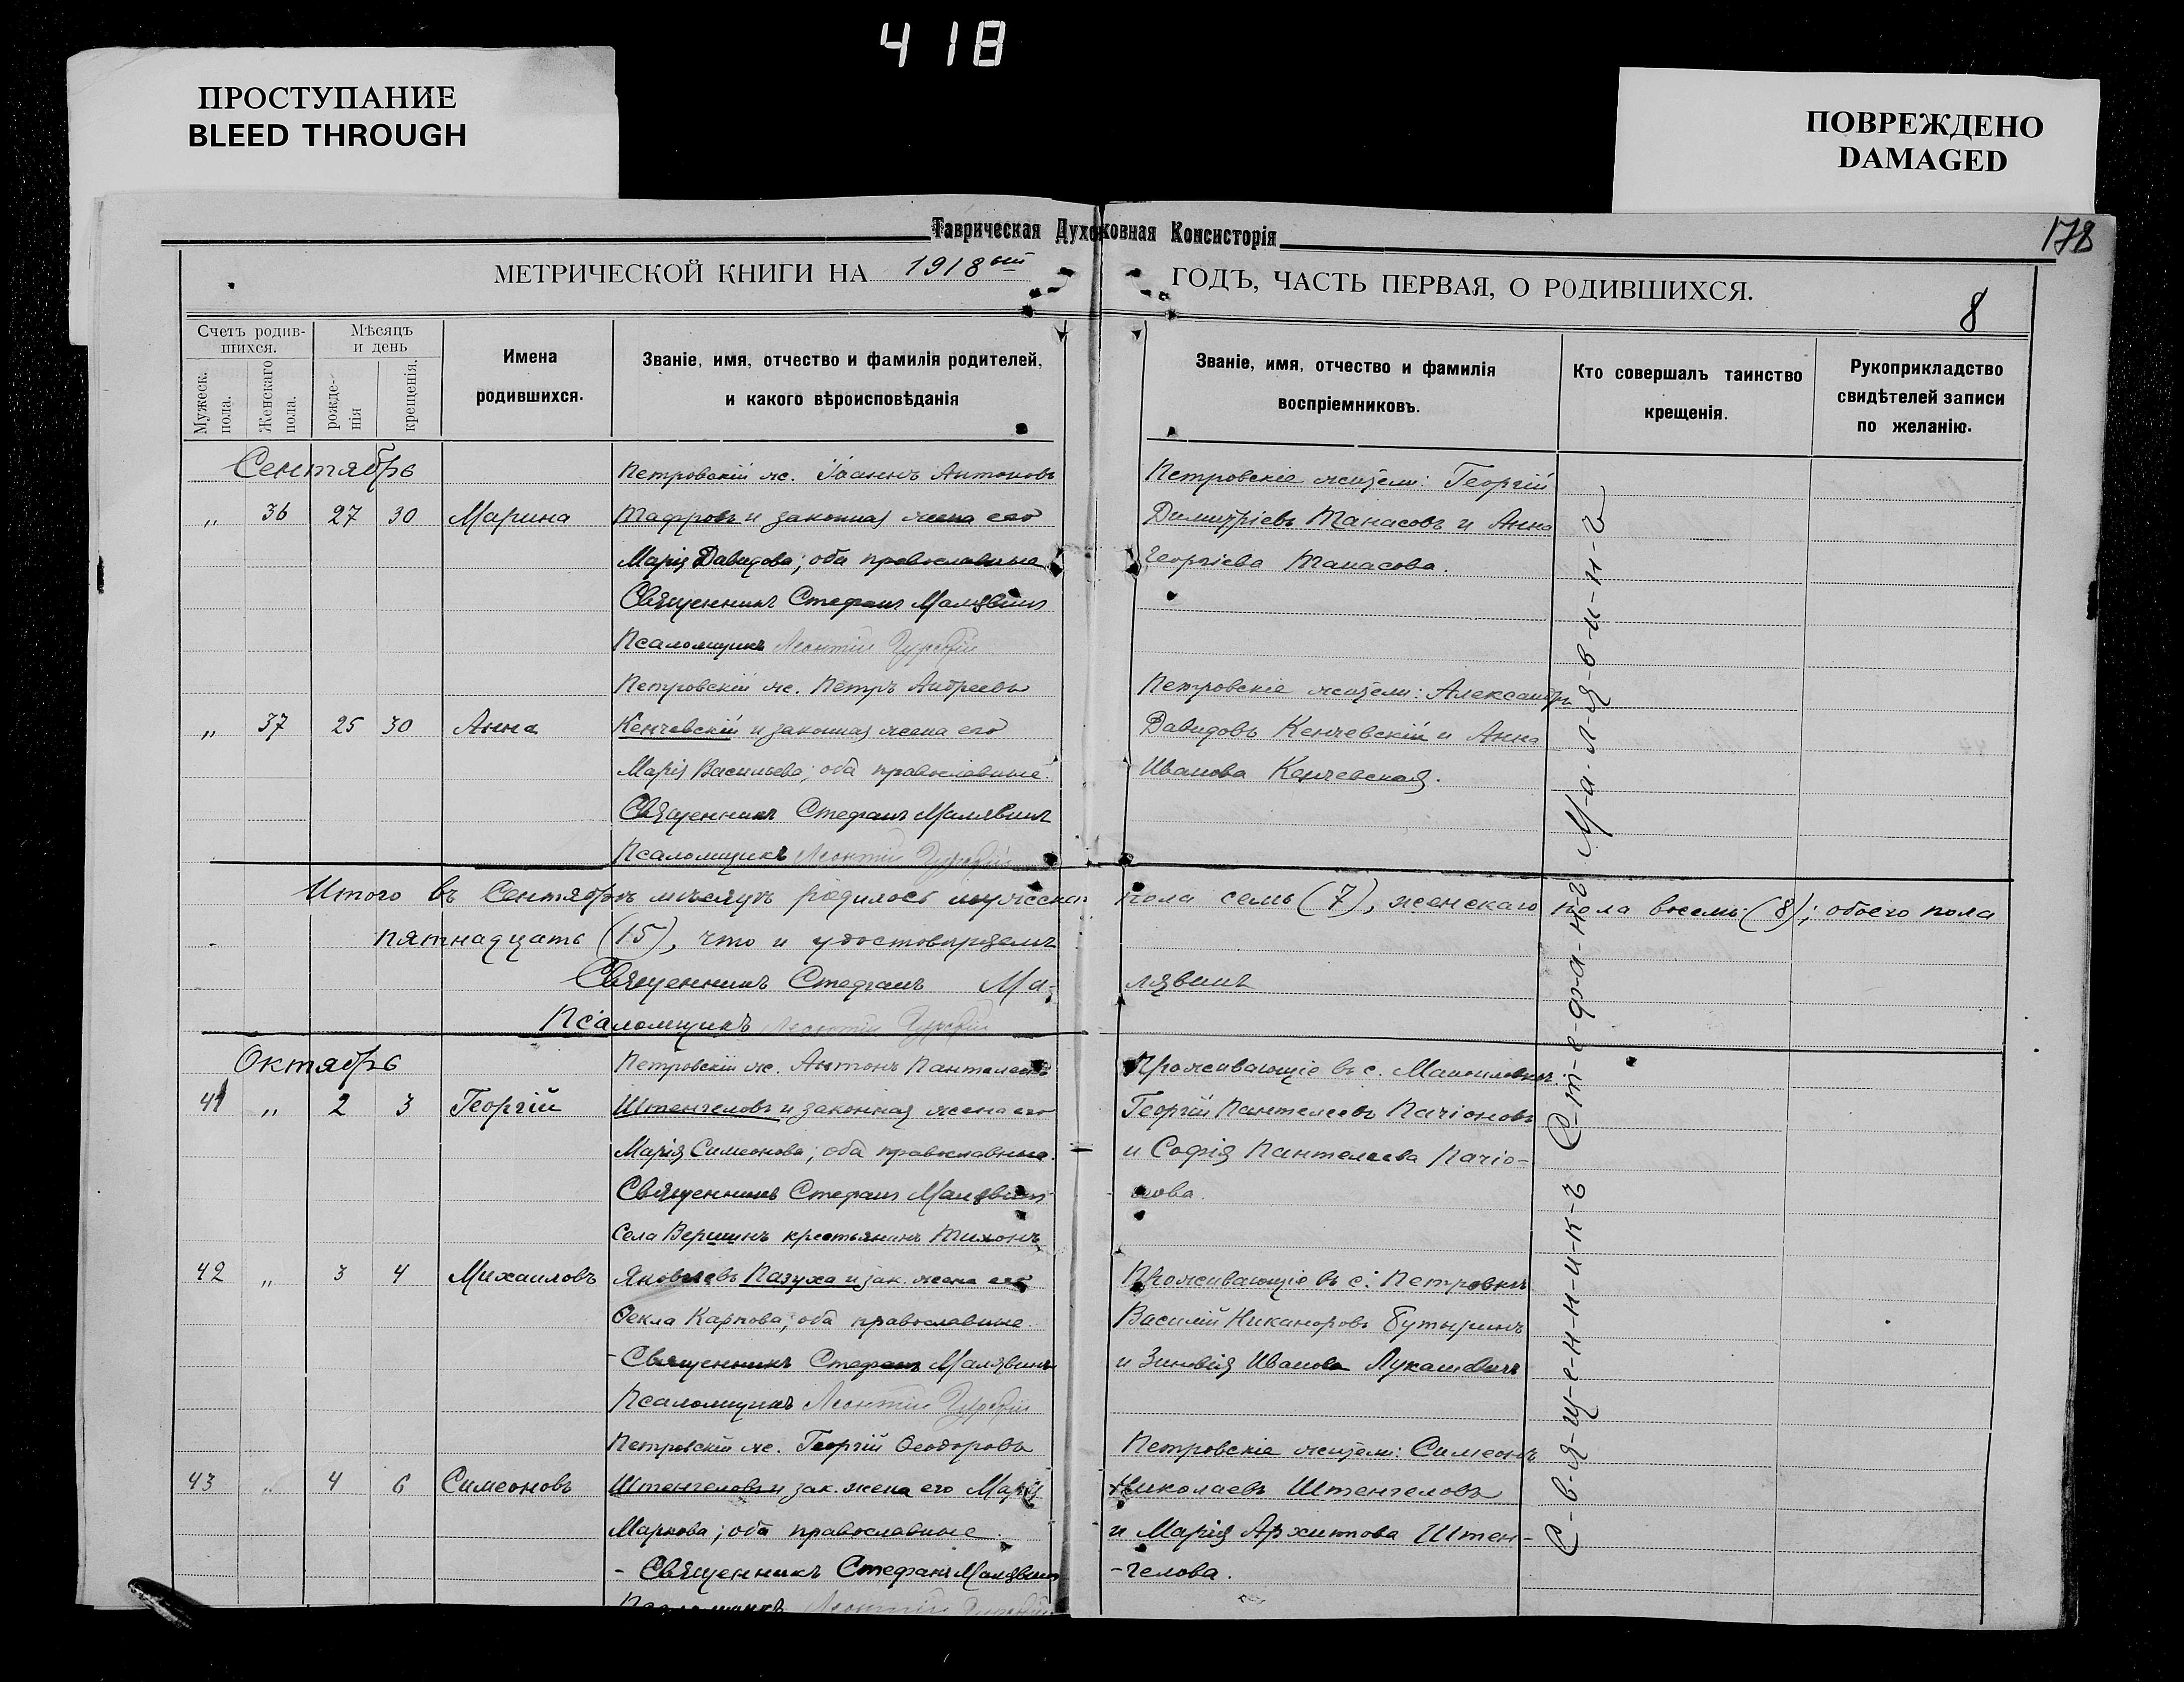 418
ПРОСТУПАНИЕ
BLEED THROUGH
ПОВРЕЖДЕНО
DAMAGED
Таврическая Духовная Консисторія
178
МЕТРИЧЕСКОЙ КНИГИ НА 1918ый ГОДЪ, ЧАСТЬ ПЕРВАЯ, О РОДИВШИХСЯ.
8
Счетъ родив-
шихся.
Мужеск.
пола.
Женскаго
пола.
Мѣсяцъ
и день
рожде-
нія
крещенія.
Имена
родившихся.
Званіе, имя, отчество и фамилія родителей,
и какого вѣроисповѣданія
Званіе, имя, отчество и фамилія
воспріемниковъ.
Кто совершалъ таинство
крещенія.
Рукоприкладство
свидѣтелей записи
по желанію.
Сентябрь
„ 36 27 30 Марина
Петровскій ж. Іоаннъ Антоновъ
Тафровъ и законная жена его
Марія Давидова; оба православные
Священникъ Стефанъ Малявинъ
Псаломщикъ Леонтій
Петровскіе жители: Георгій
Димитріевъ Танасовъ и Анна
Георгіева Танасова.
„ 37 25 30 Анна
Петровскій ж. Петръ Андреевъ
Кенчевскій и законная жена его
Марія Васильева; оба православные.
Священникъ Стефанъ Малявинъ
Псаломщикъ Леонтій
Петровскіе жители: Александръ
Давидовъ Кенчевскій и Анна
Иванова Кенчевская.
Итого въ Сентябрѣ мѣсяцѣ родилось мужеска пола семь (7), женскаго пола восемь (8); обоего пола
пятнадцать (15), что и удостовѣряемъ
Священникъ Стефанъ Ма-лявинъ
Псаломщикъ Леонтій
Октябрь
41 „ 2 3 Георгій
Петровскій ж. Антонъ Пантелеевъ
Штенгеловъ и законная жена его
Марія Симеонова; оба православные.
Священникъ Стефанъ Малявинъ
Проживающіе въ с. Мануиловкѣ:
Георгій Пантелеевъ Пачіоновъ
и Софія Пантелеева Пачіо-
нова.
42 „ 3 4 Михаиловъ
Села Вершинъ крестьянинъ Тихонъ
Яковлевъ Пазуха и зак. жена его
Ѳекла Карпова; оба православные.
- Священникъ Стефанъ Малявинъ
Псаломщикъ Леонтій
Проживающіе въ с. Петровкѣ
Василій Никаноровъ Бутыринъ
и Зиновія Иванова Лукашевичъ
43 „ 4 6 Симеоновъ
Петровскій ж. Георгій Ѳеодоровъ
Штенгеловъ и зак. жена его Марія
Маркова; оба православные.
- Священникъ Стефанъ Малявинъ
Псаломщикъ Леонтій
Петровскіе жители: Симеонъ
Николаевъ Штенгеловъ
и Марія Архипова Штен-
-гелова.
С-в-я-щ-е-н-н-и-к-ъ С-т-е-ф-а-н-ъ М-а-л-я-в-и-н-ъ